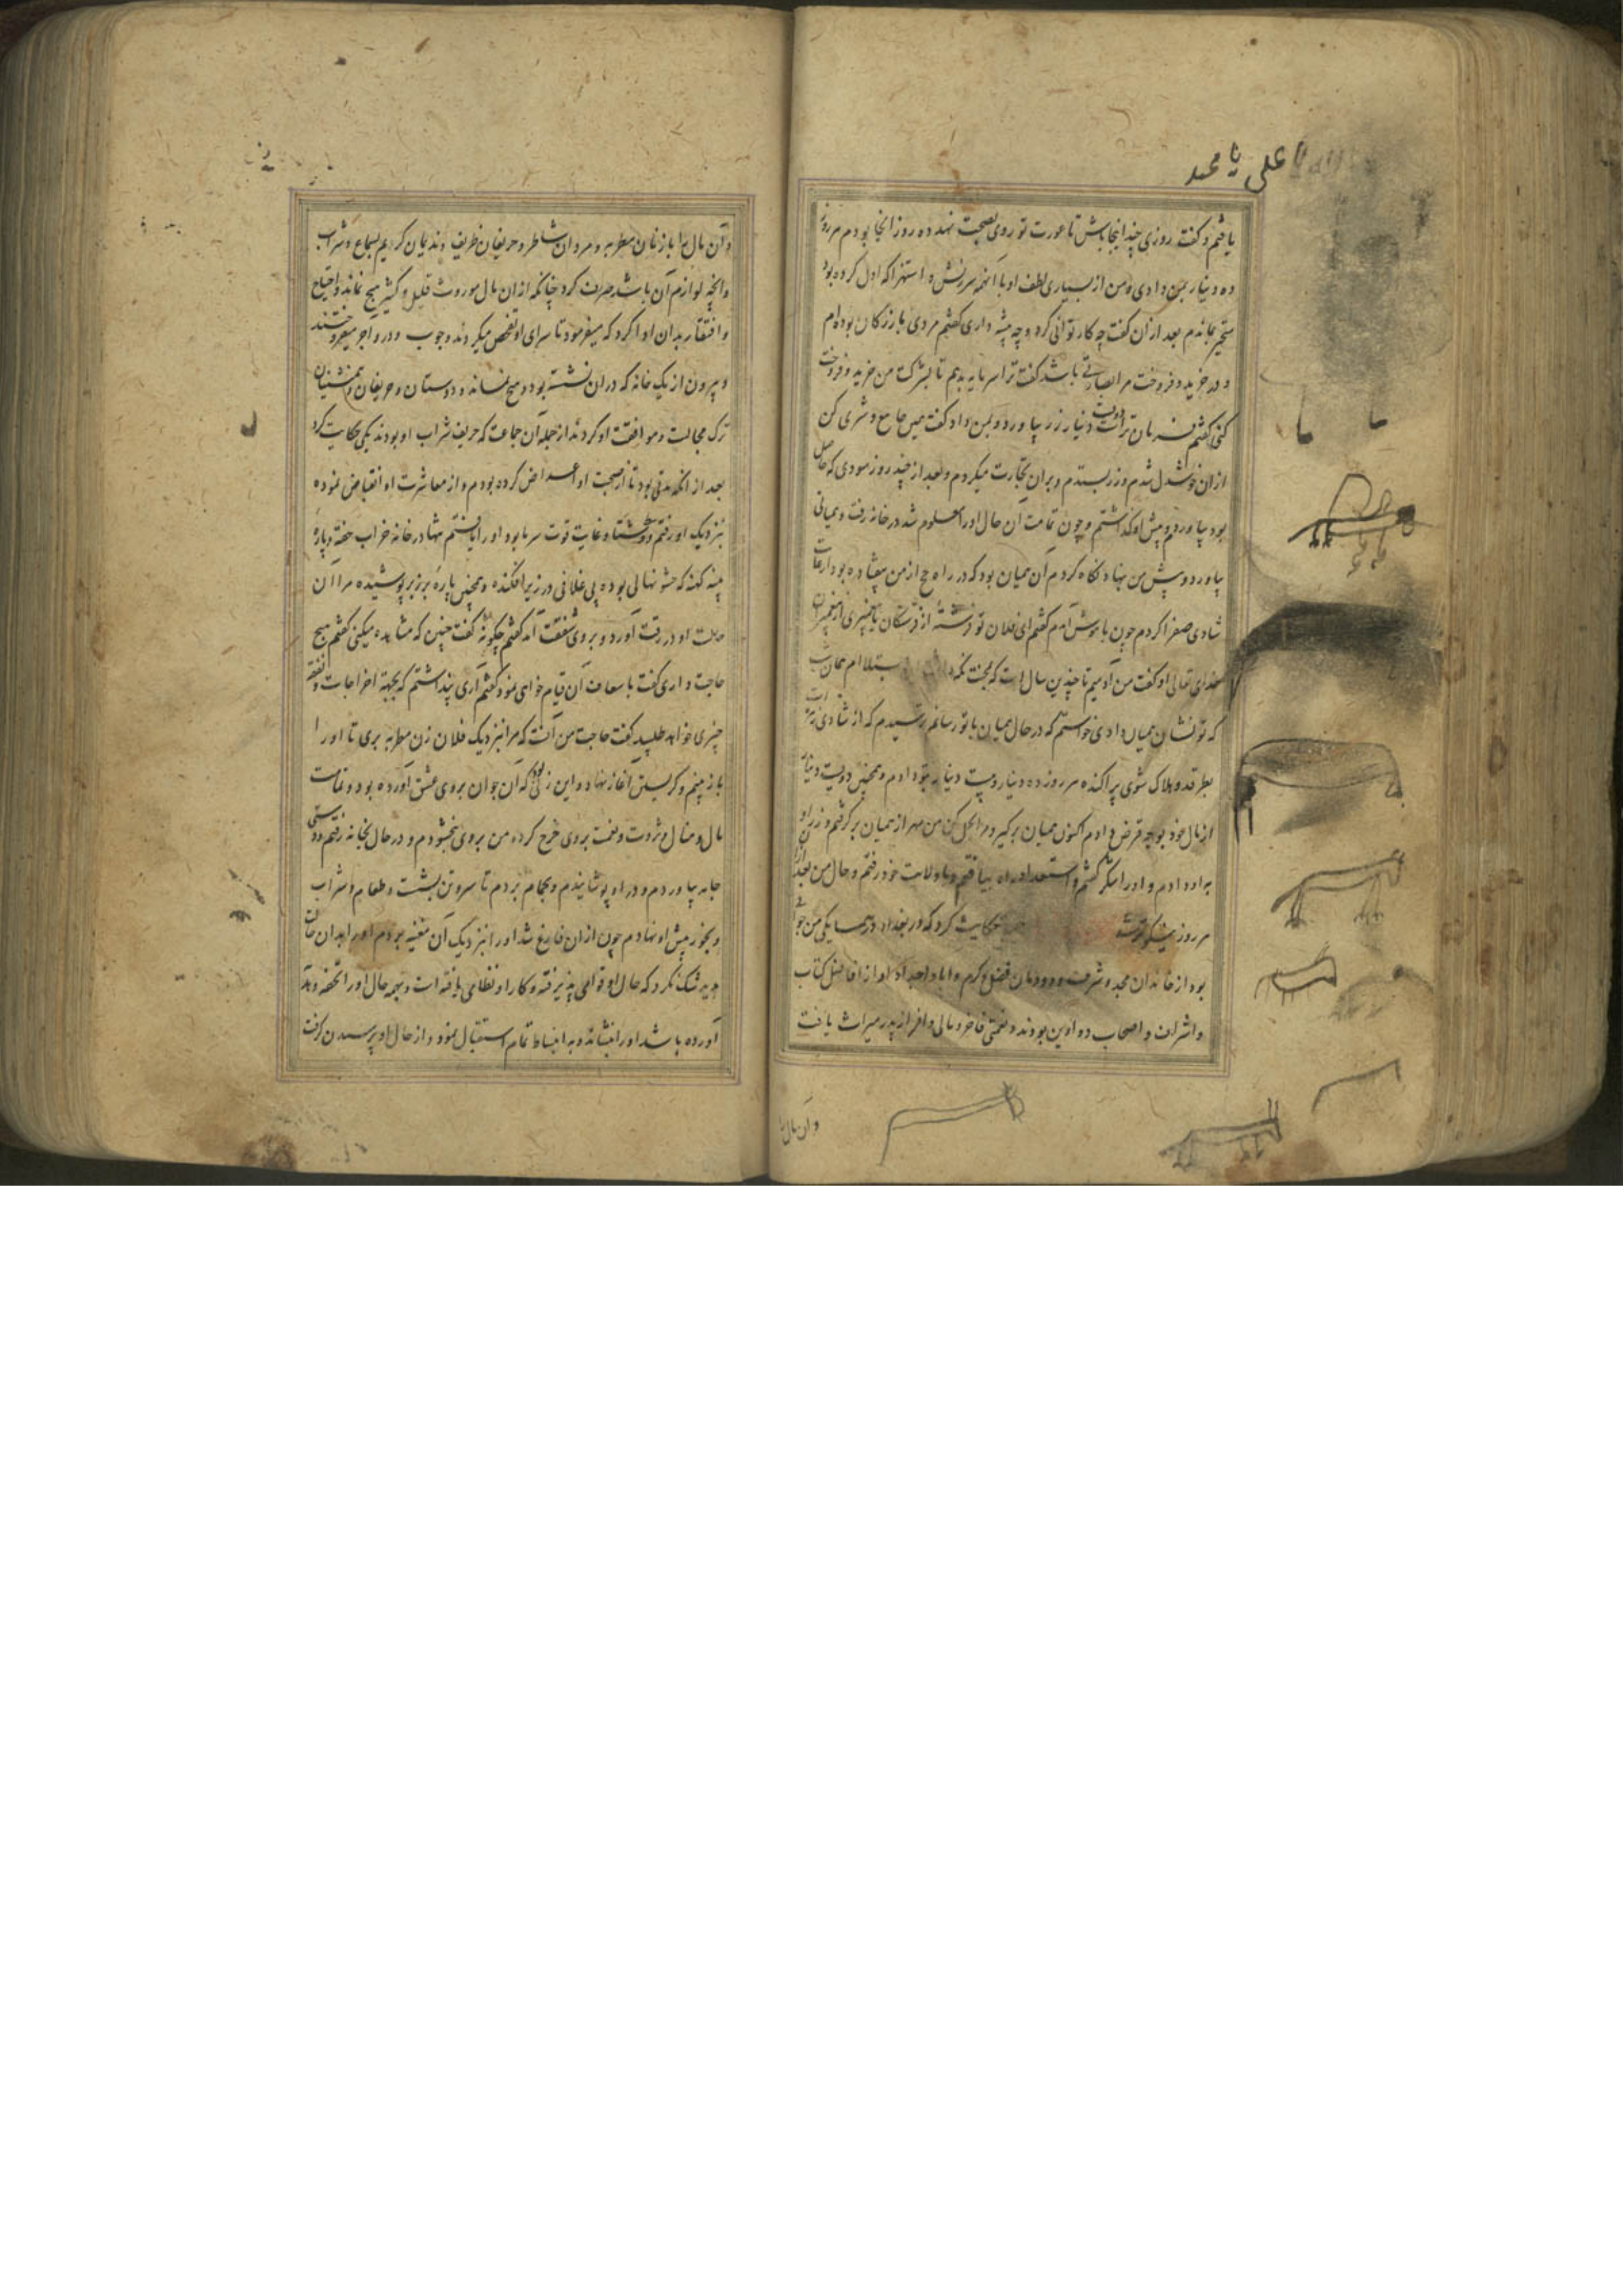 یا علی یا محمد
یافتم و گفت روزی چند اینجا باش تا عورت تو روی بصحت نهد ده روز آنجا بودم هر روز
ده دینار بمن دادی و من از بسیاری لطف او با آنهمه سرزنش و استهزا که اول کرده بود
متحیر بماندم بعد از آن گفت چه کار توانی کرد و چه پیشه داری گفتم مردی بازرگان بوده‌ام
و در خرید و فروخت مرا بصارتی باشد گفت ترا سرمایه بدهم تا بشرکت من خرید و فروخت
کنی گفتم فرمان تراست دویست دینار زر بیاورد و بمن داد و گفت همین جا بیع و شری کن
از آن خوشدل شدم و زر بستدم و بر آن تجارت میکردم و بعد از چند روز سودی که حاصل
بود بیاوردم و پیش او گذاشتم و چون تمامت آن حال او را معلوم شد در خانه رفت و همیانی
بیاورد و پیش من بنهاد نگاه کردم آن همیان بود که در راه حج از من بیفتاده بود از غایت
شادی صفرا کردم چون با هوش آمدم گفتم ای فلان تو فرشته از فرشتگان یا پیغمبری از پیغمبران
خدای تعالی او گفت من آدمیم تا چندین سال است که بمحنت نگه مبتلا ام همان شب
که تو نشان همیان دادی خواستم که در حال همیان با تو رسانم ترسیدم که از شادی زهره ات
بطرقد و هلاک شوی پراکنده هر روز ده دینار و بیست دینار بتو دادم و همچنین دویست دینار
از مال خود بوجه قرض دادم اکنون همیان برگیر و مرا بحل کن من مهر از همیان برگرفتم و زر او
به او دادم و او را شکر گفتم و استعداد راه بیافتم و با ولایت خود رفتم و حال من بعد از آن
هر روز نیکوتر گشت حکایت کرد که در بغداد در همسایگی من جوانی
بود از خاندان مجد و شرف و دودمان فضل و کرم و آبا و اجداد او از افاضل کتاب
و اشراف و اصحاب دواوین بودند و نعمتی فاخر و مالی وافر از پدر میراث یافت
و آن مال را
و آن مال را با زنان مطربه و مردان شاطر و حریفان ظریف و ندیمان کریم بسماع و شراب
و آنچه لوازم آن باشد صرف کرد چنانکه از آن مال موروث قلیل و کثیر هیچ نماند و احتیاج
و افتقار بدان ادا کرد که میفرمود تا سرای او نقض میکردند و چوب و در و آجر میفروختند
و بیرون از یک خانه که در آن نشسته بود هیچ نماند و دوستان و حریفان و همنشینان
ترک مجالست و موافقت او کردند از جمله آن جماعت که حریف شراب او بودند یکی حکایت کرد
بعد از آنکه مدتی بود تا از صحبت او اعراض کرده بودم و از معاشرت او انقباض نموده
بنزدیک او رفتم و زمستان و غایت قوت سرما بود او را یافتم تنها در خانه خراب خفته و پاره
پنبه کهنه که حشو نهالی بوده بی غلافی در زیر افکنده و همچنین پاره بر زبر پوشیده مرا آن
حالت او در رقت آورد و بر وی شفقت آمد گفتم چگونه گفت چنین که مشاهده میکنی گفتم هیچ
حاجت داری گفت باسعاف آن قیام خواهی نمود گفتم آری پنداشتم که بجهة اخراجات و نفقه
چیزی خواهد طلبید گفت حاجت من آنست که مرا بنزدیک فلان زن مطربه بری تا او را
باز بینم و گریستن آغاز نهاد و این زنی بود که آن جوان بر وی عشق آورده بود و تمامت
مال و منال و ثروت و نعمت بر وی خرج کرده من بر وی ببخشودم و در حال بخانه رفتم و دستی
جامه بیاوردم و در او پوشانیدم و بحمام بردم تا سر و تن بشست و طعام و شراب
و بخور پیش او نهادم چون از آن فارغ شد او را بنزدیک آن مغنیه بردم او را بدان حالت
بدید شک نکرد که حال او قوامی پذیرفته و کار او نظامی یافته است و بهمه حال او را تحفه و هدیه
آورده باشد او را بنشاند و به انبساط تمام استقبال نمود و از حال او پرسیدن گرفت